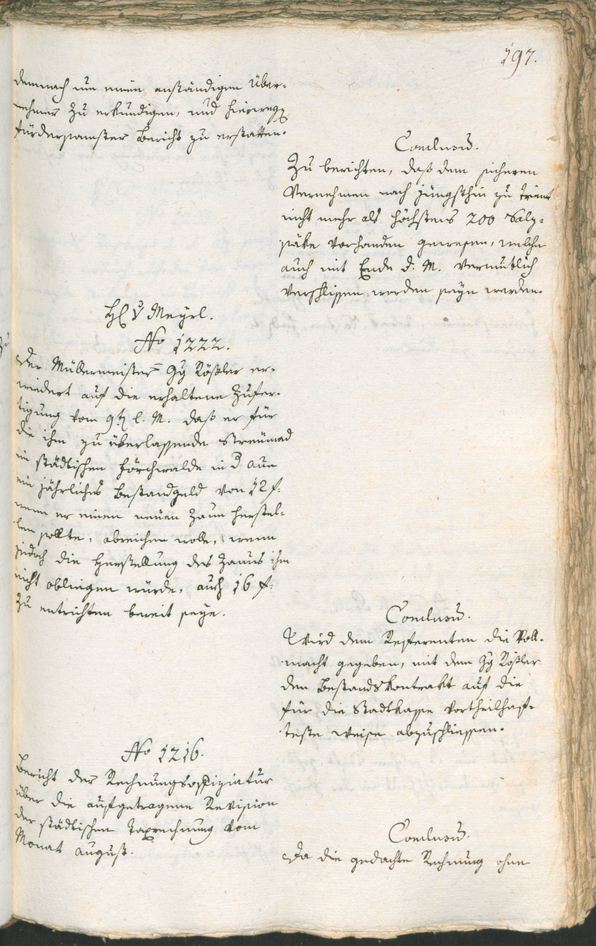 197.
demnach um einen anständigen Über-
nehmer zu erkundigen, und hierwegen
fürdersamster Bericht zu erstatten.
Conclusum.
Zu berichten, daß dem sicheren
Vernehmen nach jüngsthin zu Trient
nicht mehr als höchstens 200 Salz-
säke vorhanden gewesen, welche
auch mit Ende d. M. vermutlich
verschlissen worden seyn werden.
H. v Meyrl.
No 1222.
Der Müllermeister Gg Rößler er-
wiedert auf die erhaltene Zufer-
tigung vom 9t. l. M. daß er für
die ihm zu überlassende Streumad
im städtischen Förchwalde in d Aue
ein jährliches Bestandgeld von 12 f.
wenn er einen neuen Zaun herstel-
len sollte, abreichen wolle, wenn
jedoch die Herstellung des Zauns ihm
nicht obliegen würde, auch 16 f.
zu entrichten bereit seye.
Conclusum.
Wird dem Referenten die Voll-
macht gegeben, mit dem Gg Rößler
den Bestandskontrakt auf die
für die Stadtkasse vortheilhaf-
teste Weise abzuschliessen.
No 1216.
Bericht der Rechnungsoffiziatur
über die aufgetragene Revision
der städtischen Taxrechnung vom
Monat August.
Conclusum.
Da die gedachte Rechnung ohne